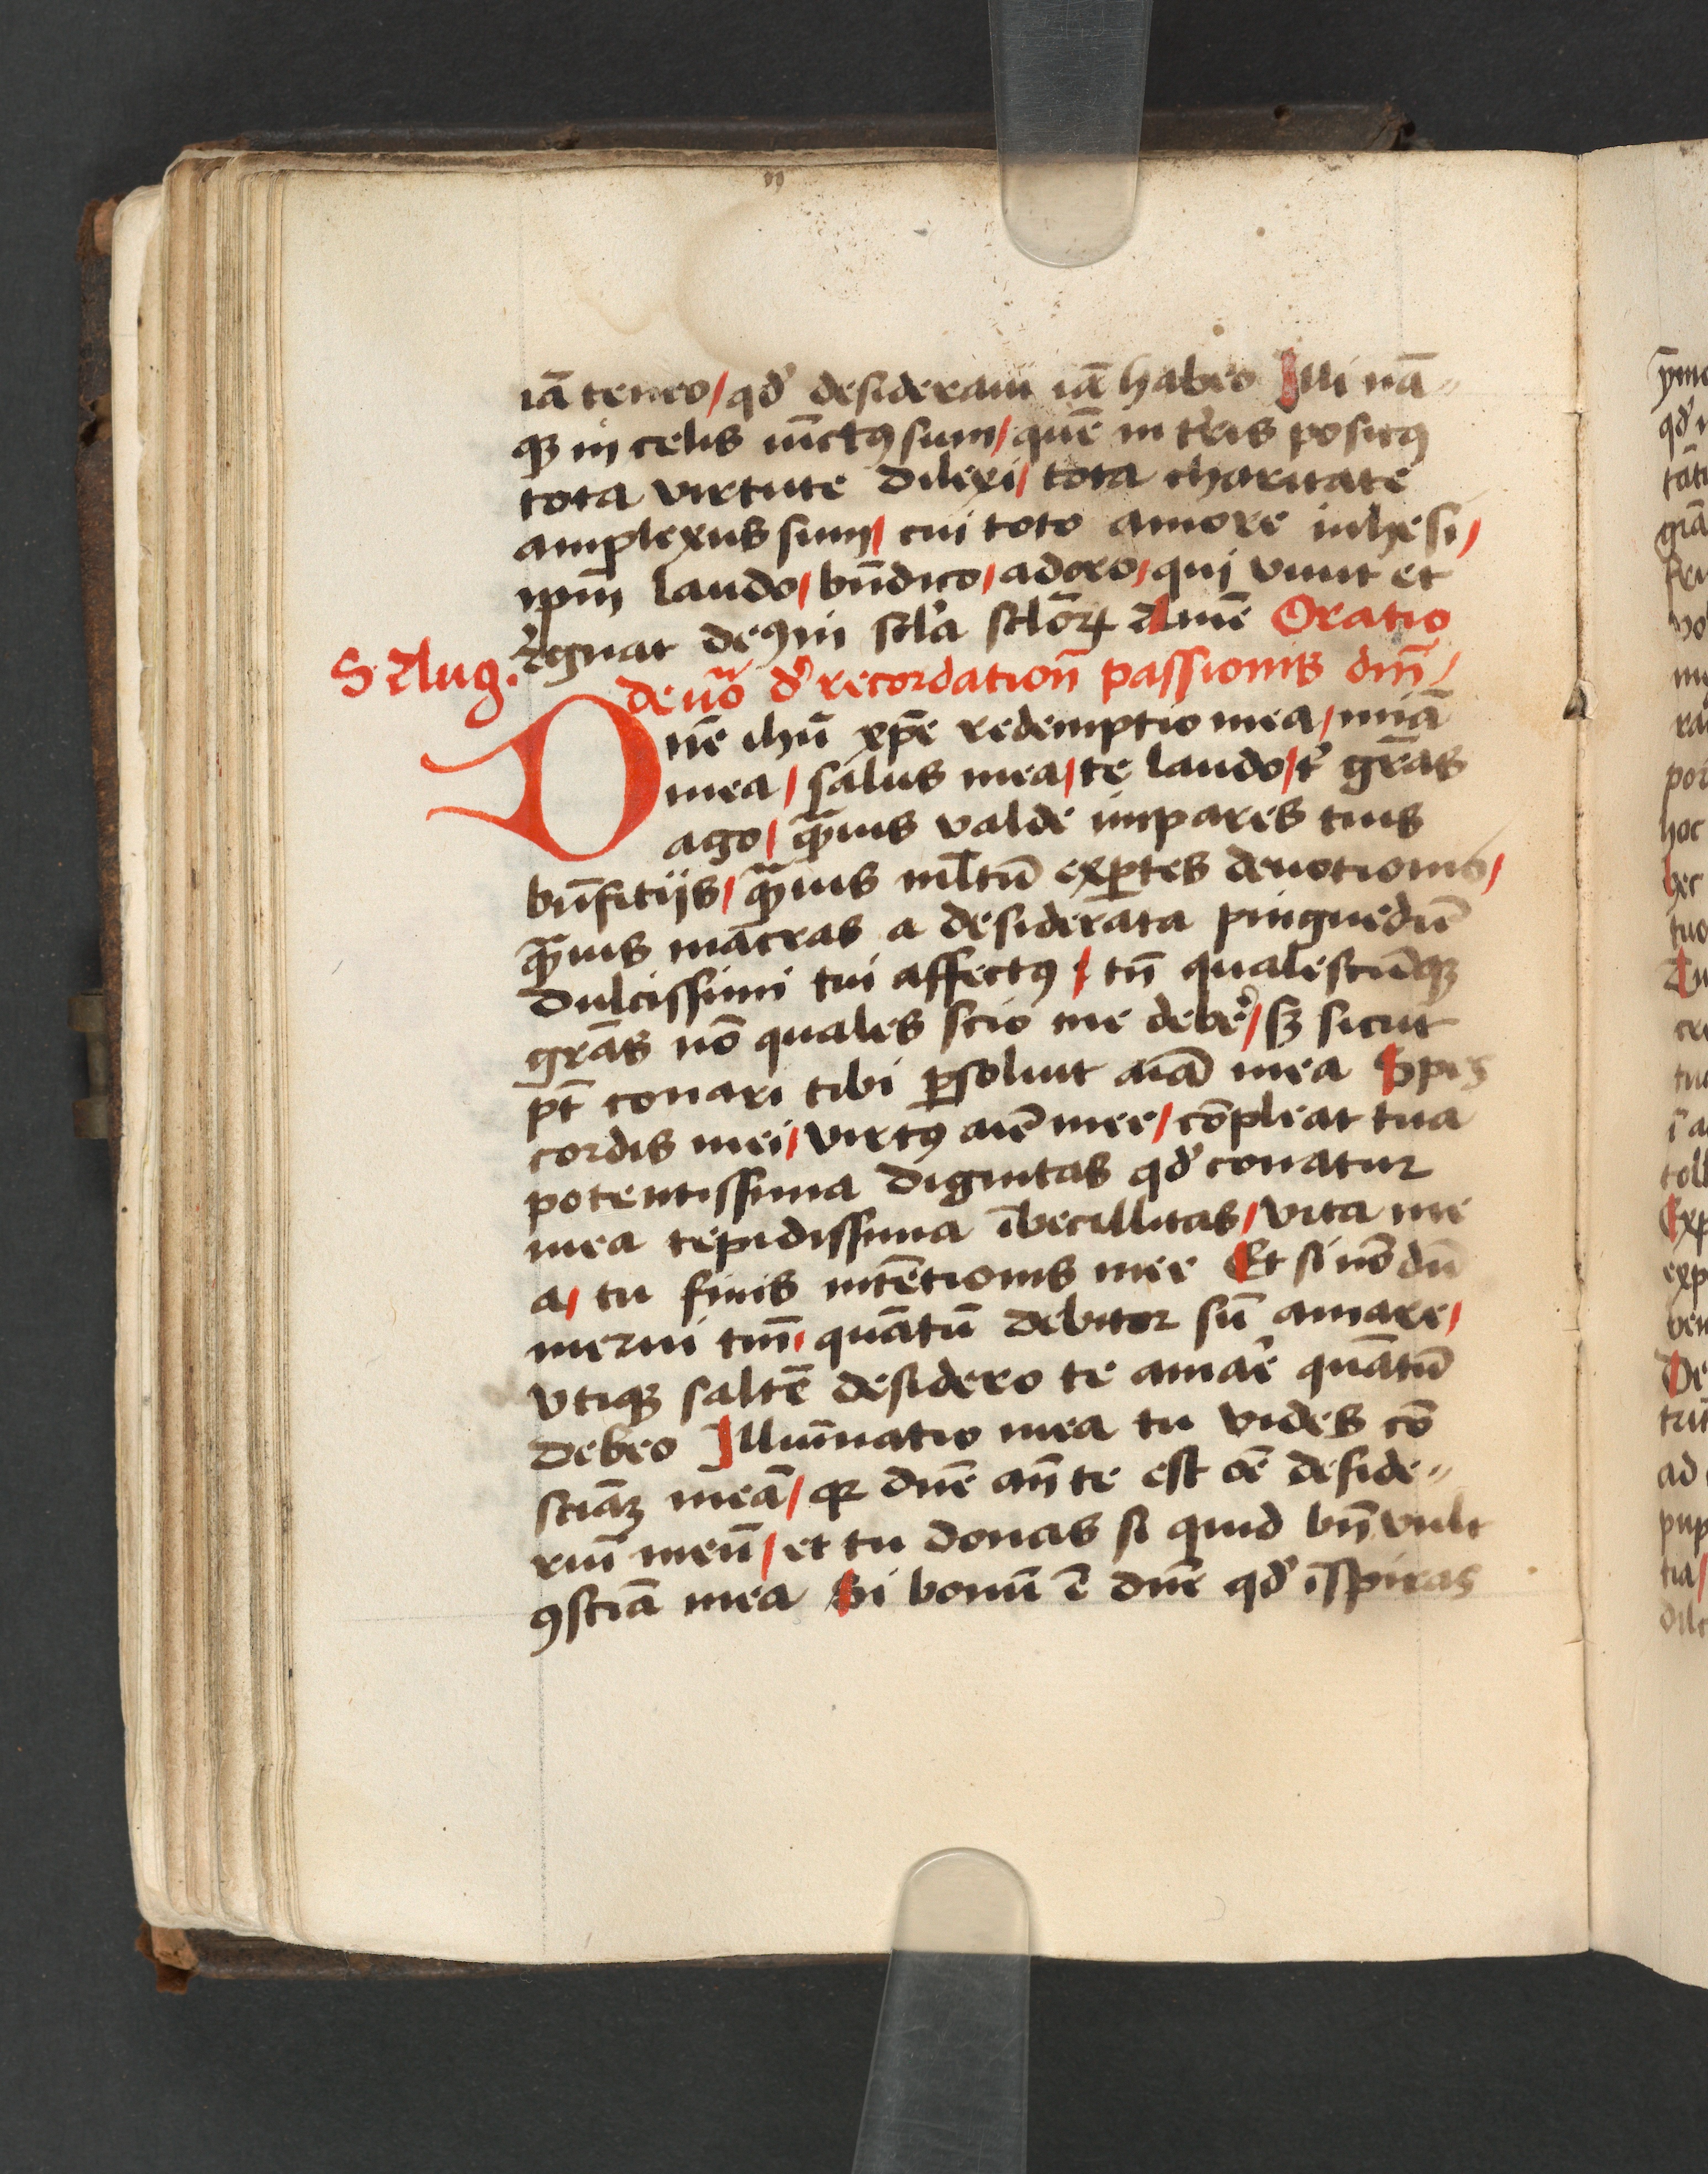 iā teneo/ qd᷎ desideraui iā habeo Illi nā⸗
qꝫ in celis iūctꝰ sum/ quē in tr̄is positꝰ
tota virtute dilexi/ tota charitate
amplexus sum/ cui toto amore inhesi/
ipm̄ laudo/ bn̄dico/ adoro/ qui viuit et
regnat deꝰ in scl̄a scl̄oꝝ Amē Oratio
S. Aug.
deuō d᷎ recordation̄ passionis dn̄i/
Dn̄e ihū xp̄e redemptio mea/ mīa
mea/ salus mea/ te laudo/ t᷎ grās
ago/ qͣꝫuis valde impares tuis
bn̄fitijs/ qͣꝫuis ml̄tū exꝑtes deuotionis/
qͣꝫuis macras a desiderata pinguedīe
dulcissimi tui affectꝰ/ tn̄ qualescūqꝫ
grās nō quales scio me deber̄/ sꝫ sicut
pt̄ conari tibi ꝑsoluit aīa mea Spes
cordis mei/ virtꝰ aīe mee/ cōpleat tua
potentissima dignitas qd᷎ conatur
mea tepidissima ībecillitas/ vita me
a/ tu finis intētionis mee Et si nō dū
merui tm̄/ quātū debitor sū amare/
vtiqꝫ saltē desidero te amar̄e quātū
debeo Illuīnatio mea tu vides cō
sciāꝫ meā/ qꝛ dn̄e an̄ te est oē deside⸗
riū meū/ et tu donas si quid bn̄ vult
ꝯsciā mea Si bonū ē dn̄e qd᷎ īspiras